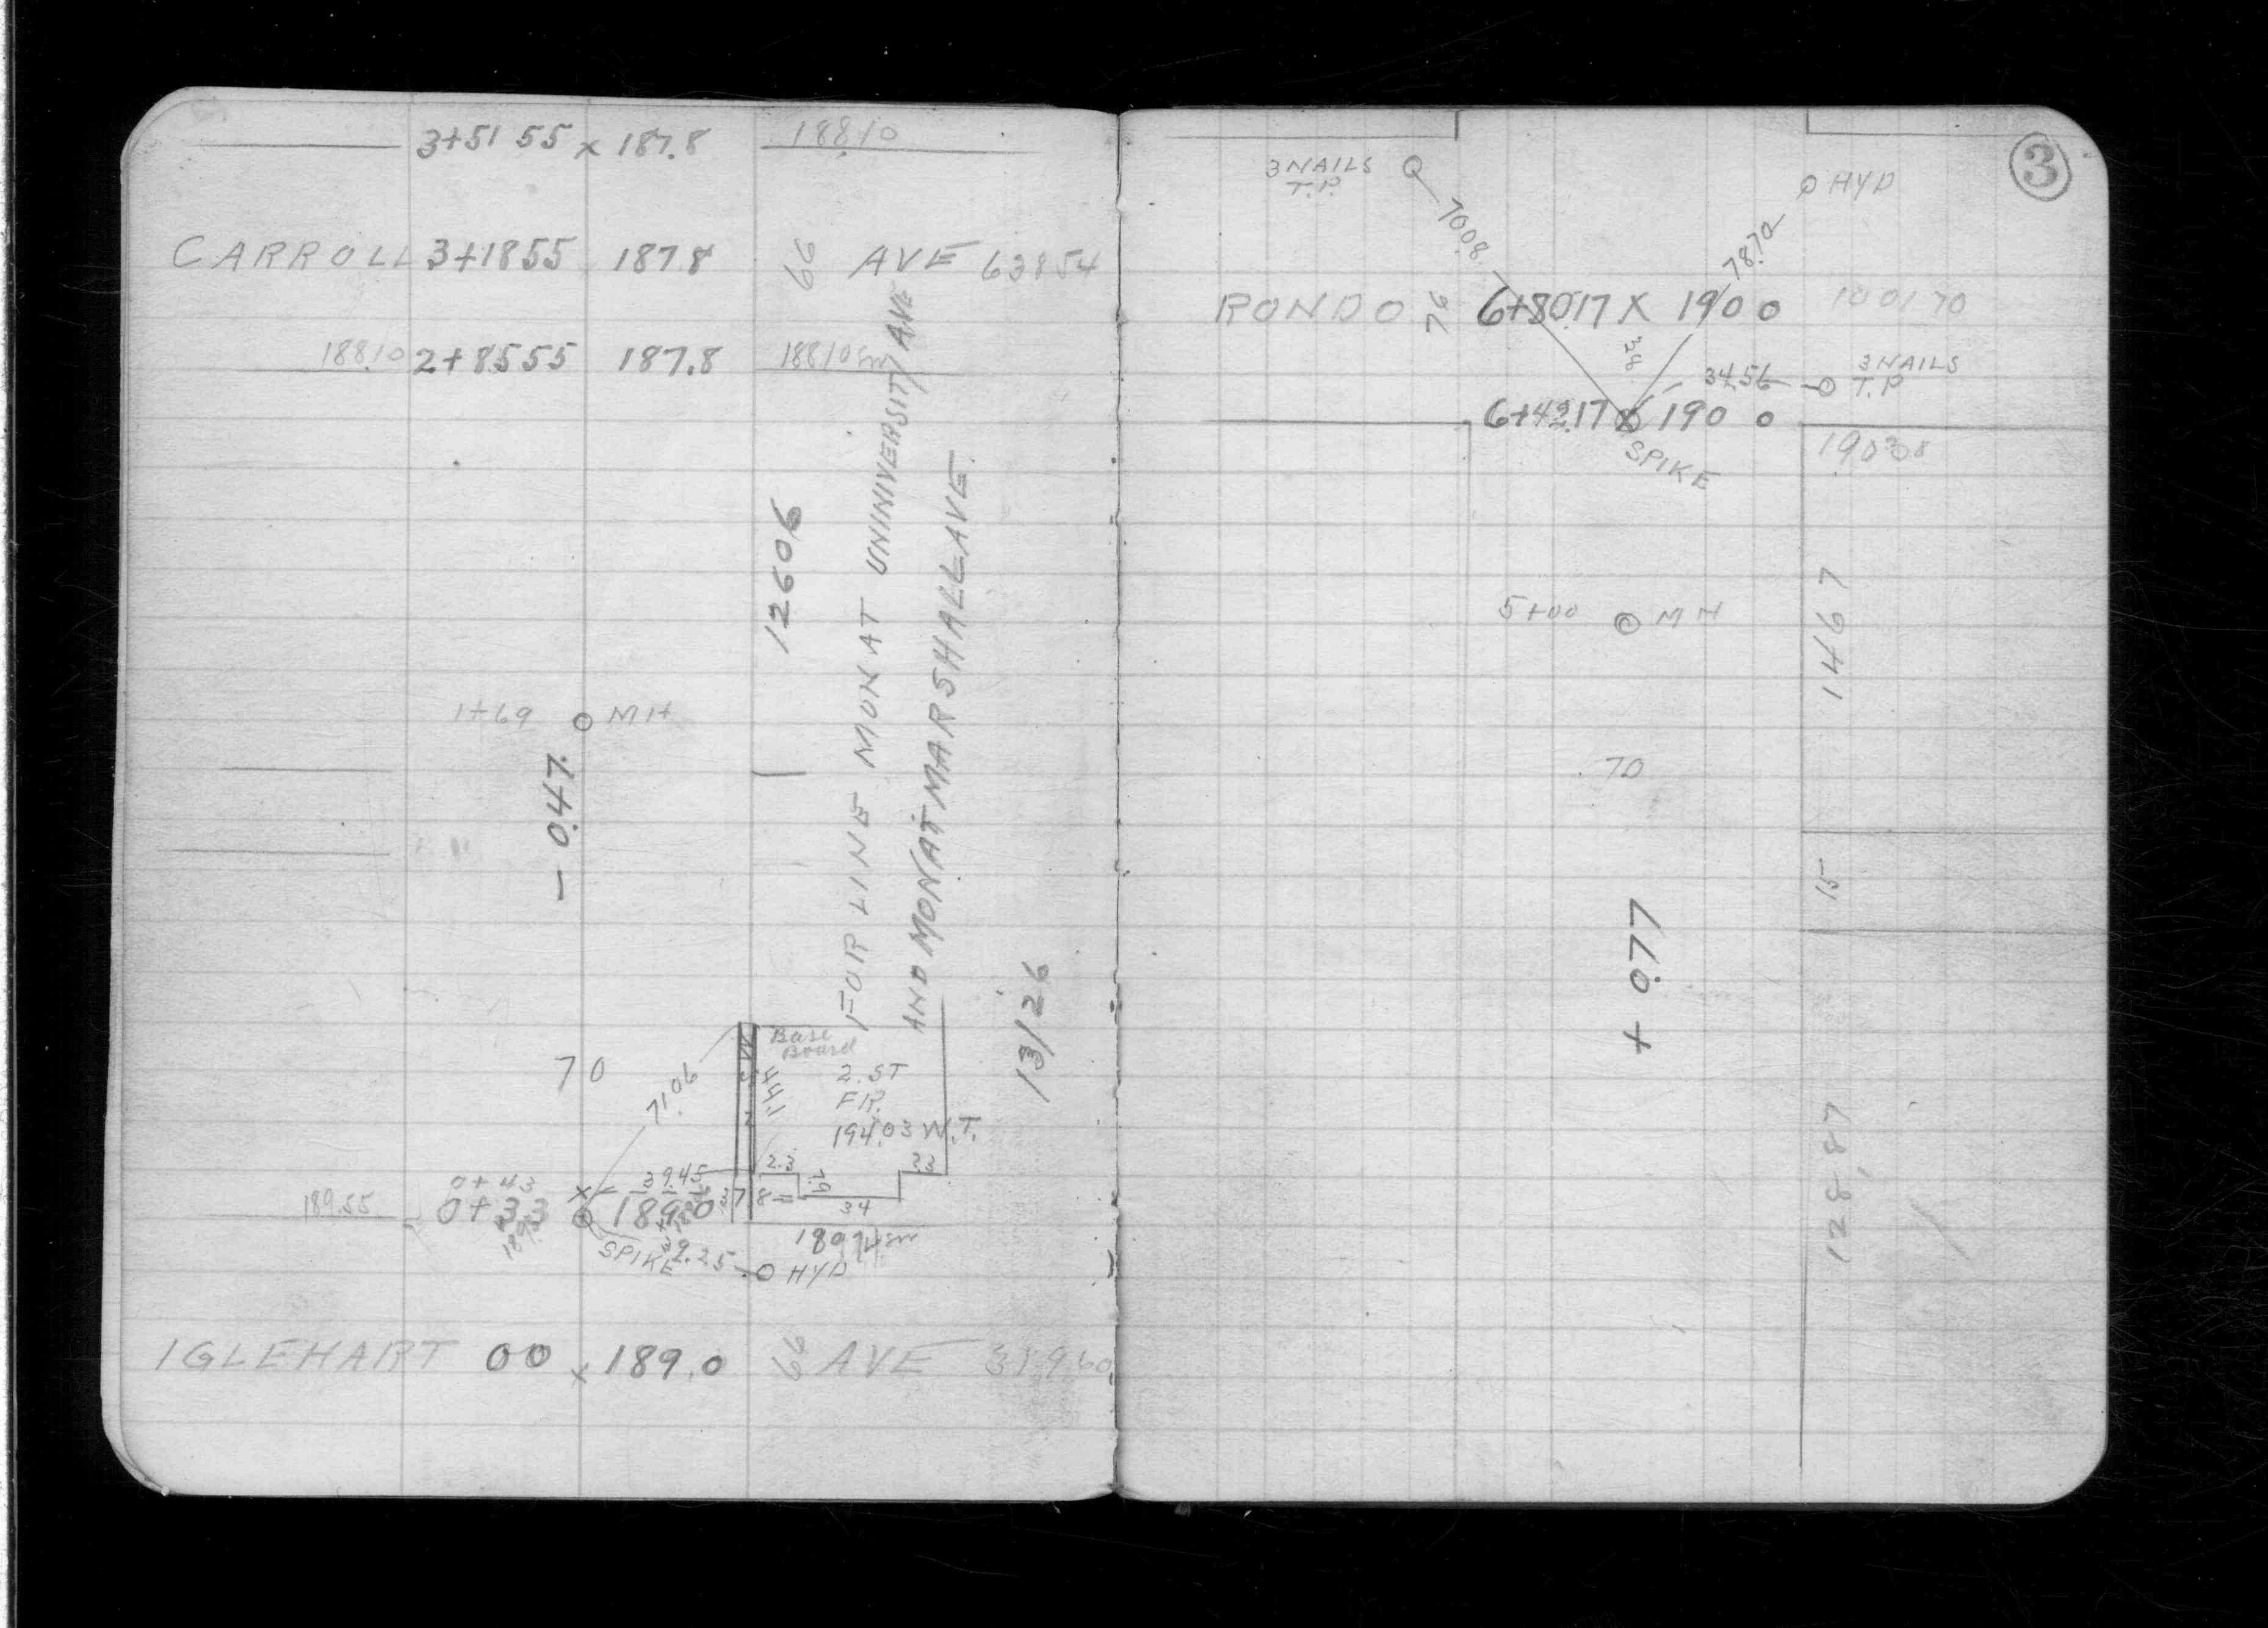 3+51 55 x 187.8 188.10
CARROLL 3+18 55 187.8 66 AVE 638 54
188.10 2+85.55 187.8 188.10 sw
126.06
FOR LINE MON AT UNINIVERSITY AVE
AND MON AT MARSHALL AVE.
1+69 MH
- 0.47
131.26
Base
Board
70
71.06
44.1
2. ST
FR.
194.03 W.T.
2.3
2.3
0+43
39.45
189.55 0+33 189.0
37.8
34
SPIKE
39.25 HYD
IGLEHART 00 x 189.0 66 AVE 319.60
3
3 NAILS
T.P.
HYD
70.08
78.70
RONDO 76 6+80.17 X 190 0 1001 70
38
34.56
3 NAILS
T.P
6+42.17 190 0
SPIKE
190.38
5+00 MH
146.7
70
15
+ 0.77
128.87